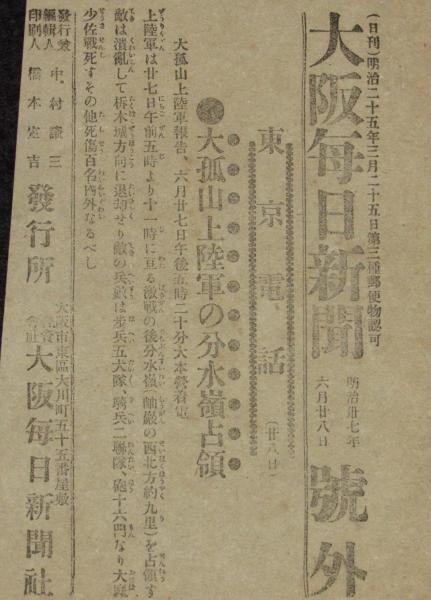 (日刊)明治二十五年三月二十五日第三種郵便物認可
大阪毎日新聞 號外
明治卅七年
六月廿八日
東京電話(廿八日)
●大孤山上陸軍の分水嶺占領
大孤山上陸軍報告、六月廿七日午後五時二十分大本營着電
上陸軍は廿七日午前五時より十一時に亘る激戰の後分水嶺(岫巖の西北方約九里)を占領す
敵は潰亂して柝木城方向に退却せり敵の兵數は歩兵五大隊、騎兵二聯隊、砲十六門なり大庭
少佐戰死すその他死傷百名內外なるべし
發行兼編輯人 中村謙三
印刷人 橋本定吉
發行所
大阪市東區大川町五十五番屋敷
大阪毎日新聞社